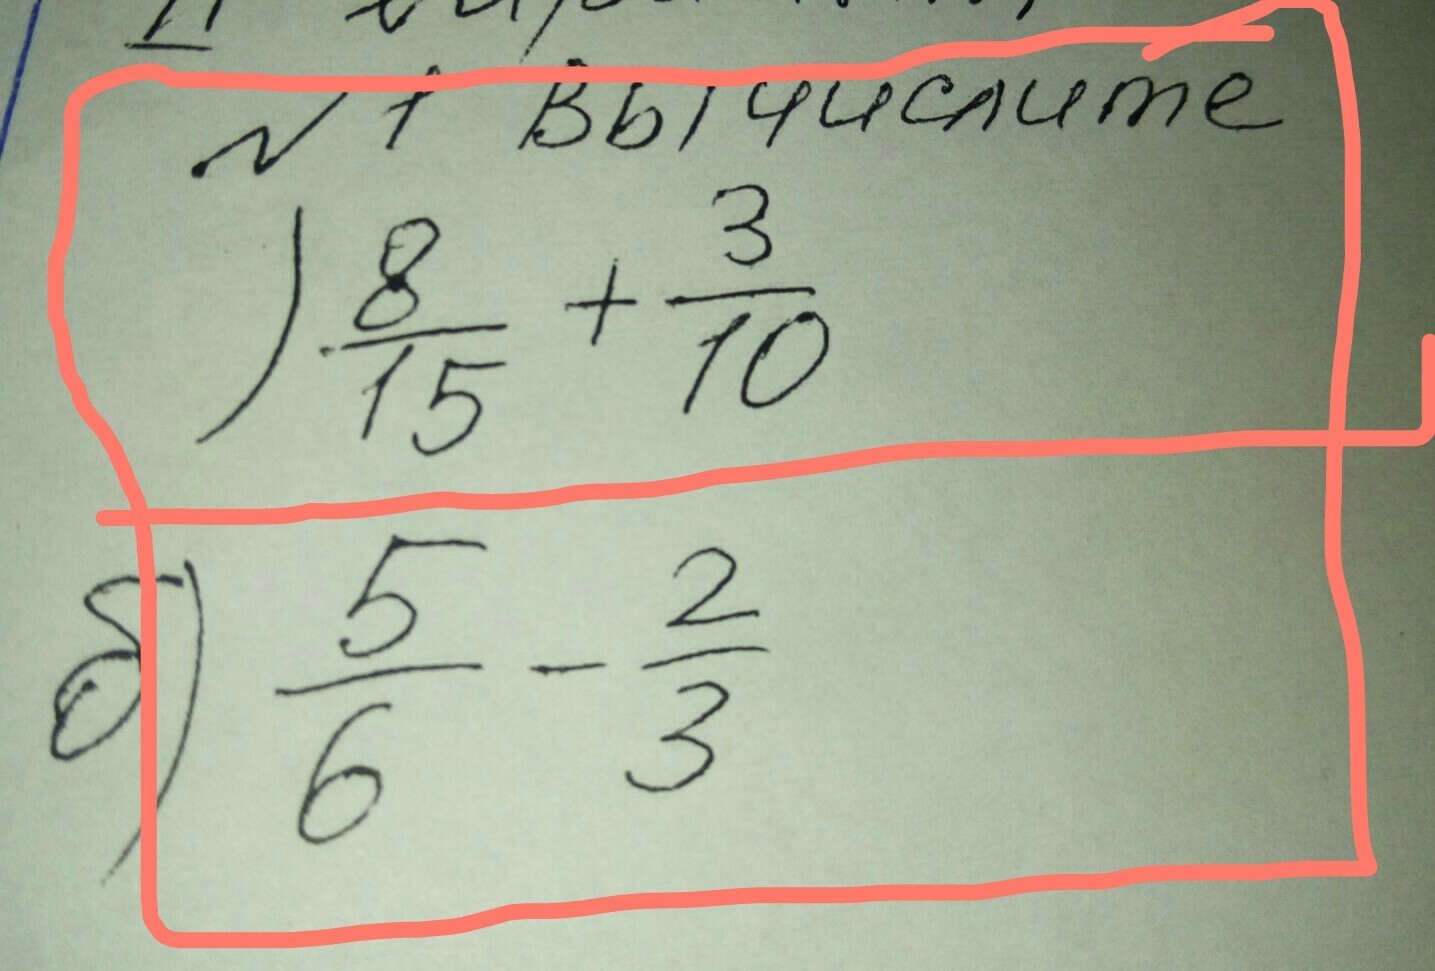 №1 Вычислите
) 8/15 + 3/10
б) 5/6 - 2/3